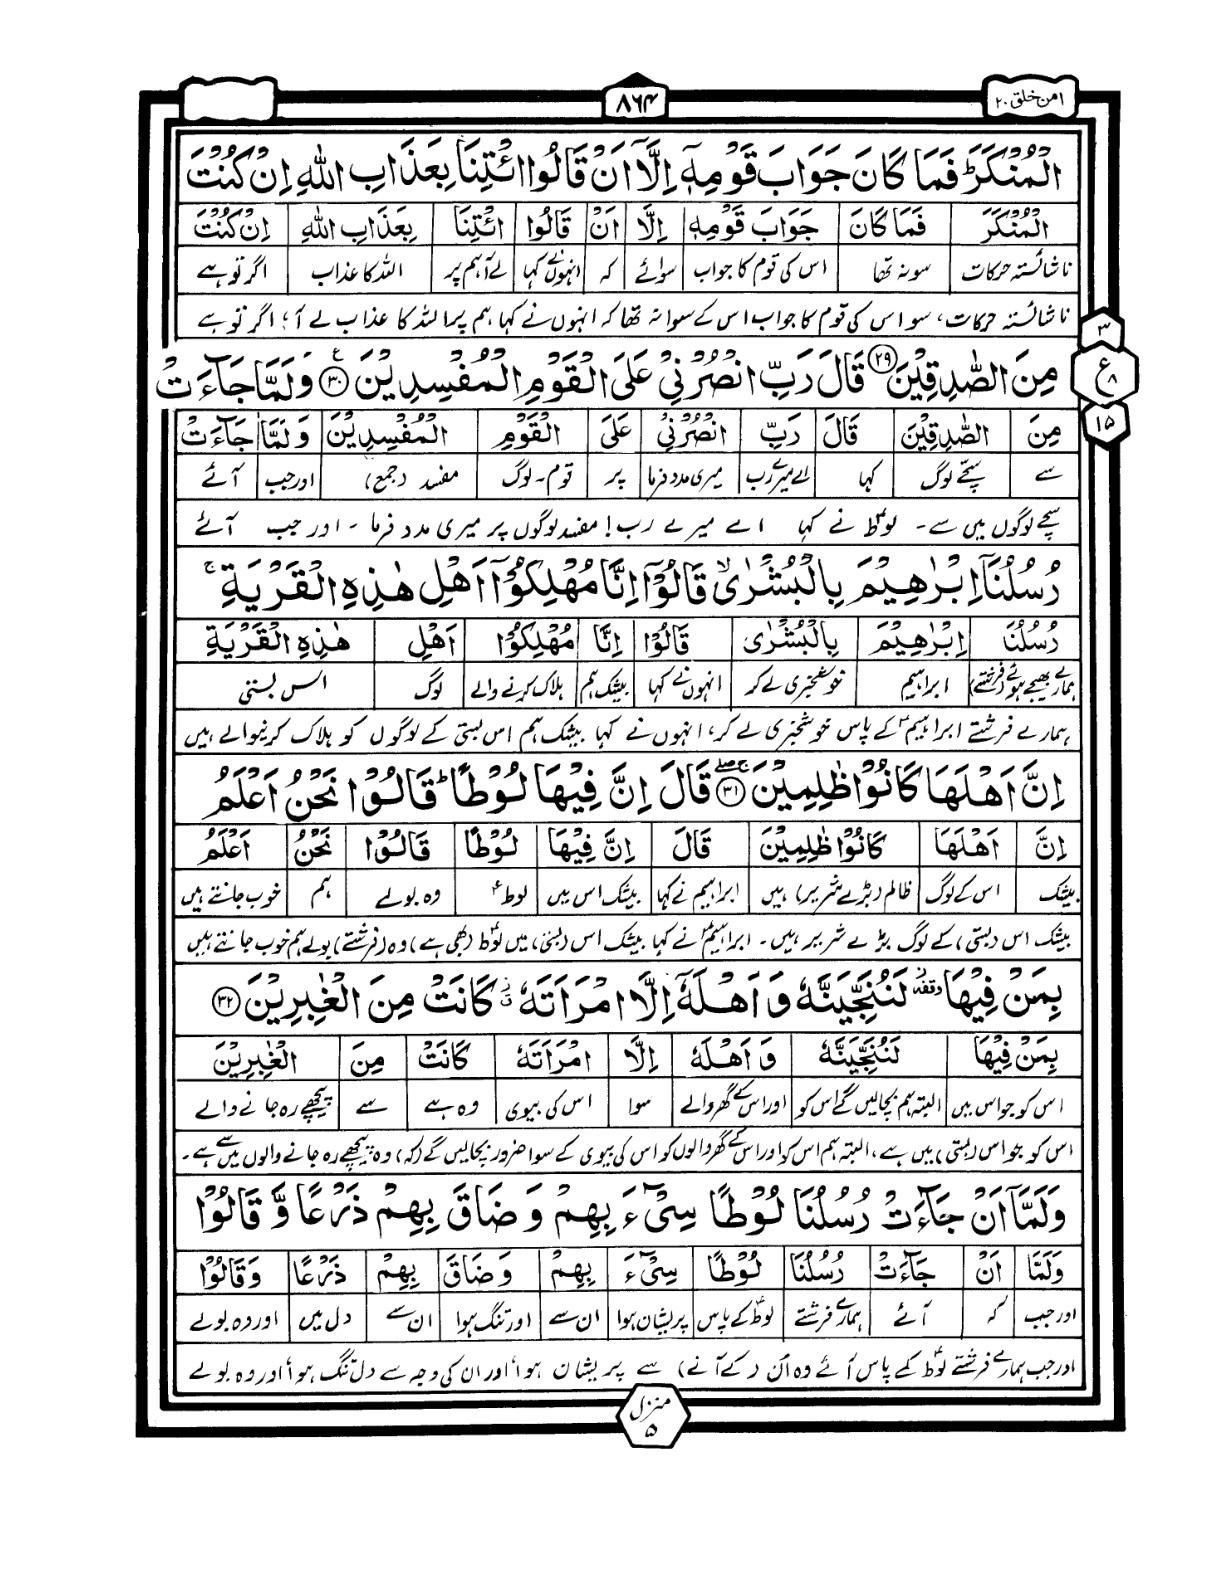 امن خلق ۲۰
۸۶۴
الْمُنْكَرَ ؕ فَمَا كَانَ جَوَابَ قَوْمِهٖۤ اِلَّاۤ اَنْ قَالُوا ائْتِنَا بِعَذَابِ اللّٰهِ اِنْ كُنْتَ
الْمُنْكَرَ فَمَا كَانَ جَوَابَ قَوْمِهٖ اِلَّا اَنْ قَالُوا ائْتِنَا بِعَذَابِ اللّٰهِ اِنْ كُنْتَ
ناشائستہ حرکات سو نہ تھا اس کی قوم کا جواب سوائے کہ انہوں نے کہا لے آ ہم پر اللہ کا عذاب اگر تو ہے
ناشائستہ حرکات، سو اس کی قوم کا جواب اس کے سوا نہ تھا کہ انہوں نے کہا ہم پر اللہ کا عذاب لے آ؛ اگر تو ہے
۳
ع
۸
۱۵
مِنَ الصّٰدِقِيْنَ ۲۹ قَالَ رَبِّ انْصُرْنِيْ عَلَى الْقَوْمِ الْمُفْسِدِيْنَ ۳۰ وَلَمَّا جَآءَتْ
مِنَ الصّٰدِقِيْنَ قَالَ رَبِّ انْصُرْنِيْ عَلَى الْقَوْمِ الْمُفْسِدِيْنَ وَلَمَّا جَآءَتْ
سے سچے لوگ کہا اے میرے رب میری مدد فرما پر قوم۔ لوگ مفسد (جمع) اور جب آئے
سچے لوگوں میں سے۔ لوطؑ نے کہا اے میرے رب! مفسد لوگوں پر میری مدد فرما ۔ اور جب آئے
رُسُلُنَاۤ اِبْرٰهِيْمَ بِالْبُشْرٰى ۙ قَالُوْۤا اِنَّا مُهْلِكُوْۤا اَهْلِ هٰذِهِ الْقَرْيَةِ ۚ
رُسُلُنَا اِبْرٰهِيْمَ بِالْبُشْرٰى قَالُوْا اِنَّا مُهْلِكُوْا اَهْلِ هٰذِهِ الْقَرْيَةِ
ہمارے بھیجے ہوئے (فرشتے) ابراہیم خوشخبری لے کر انہوں نے کہا بیشک ہم ہلاک کرنے والے لوگ اس بستی
ہمارے فرشتے ابراہیمؑ کے پاس خوشخبری لے کر، انہوں نے کہا بیشک ہم اس بستی کے لوگوں کو ہلاک کرنیوالے ہیں
اِنَّ اَهْلَهَا كَانُوْا ظٰلِمِيْنَ ۳۱ قَالَ اِنَّ فِيْهَا لُوْطًا ؕ قَالُوْا نَحْنُ اَعْلَمُ
اِنَّ اَهْلَهَا كَانُوْا ظٰلِمِيْنَ قَالَ اِنَّ فِيْهَا لُوْطًا قَالُوْا نَحْنُ اَعْلَمُ
بیشک اس کے لوگ ظالم (بڑے شریر) ہیں ابراہیم نے کہا بیشک اس میں لوطؑ وہ بولے ہم خوب جانتے ہیں
بیشک اس (بستی) کے لوگ بڑے شریر ہیں۔ ابراہیمؑ نے کہا بیشک اس (بستی) میں لوطؑ (بھی ہے) وہ (فرشتے) بولے ہم خوب جانتے ہیں
بِمَنْ فِيْهَا وقفہ لَنُنَجِّيَنَّهٗ وَ اَهْلَهٗۤ اِلَّا امْرَاَتَهٗ كَانَتْ مِنَ الْغٰبِرِيْنَ ۳۲
بِمَنْ فِيْهَا لَنُنَجِّيَنَّهٗ وَ اَهْلَهٗ اِلَّا امْرَاَتَهٗ كَانَتْ مِنَ الْغٰبِرِيْنَ
اس کو جو اس میں البتہ ہم بچالیں گے اس کو اور اس کے گھر والے سوا اس کی بیوی وہ ہے سے پیچھے رہ جانے والے
اس کو جو اس (بستی) میں ہے، البتہ ہم اس کو اور اس کے گھر والوں کو اس کی بیوی کے سوا ضرور بچالیں گے (کہ) وہ پیچھے رہ جانے والوں میں سے ہے۔
وَلَمَّاۤ اَنْ جَآءَتْ رُسُلُنَا لُوْطًا سِيْٓءَ بِهِمْ وَ ضَاقَ بِهِمْ ذَرْعًا وَّ قَالُوْا
وَلَمَّا اَنْ جَآءَتْ رُسُلُنَا لُوْطًا سِيْٓءَ بِهِمْ وَ ضَاقَ بِهِمْ ذَرْعًا وَقَالُوْا
اور جب کہ آئے ہمارے فرشتے لوطؑ کے پاس پریشان ہوا ان سے اور تنگ ہوا ان سے دل میں اور وہ بولے
اور جب ہمارے فرشتے لوطؑ کے پاس آئے وہ ان (کے آنے) سے پریشان ہوا اور ان کی وجہ سے دل تنگ ہوا اور وہ بولے
منزل
۵